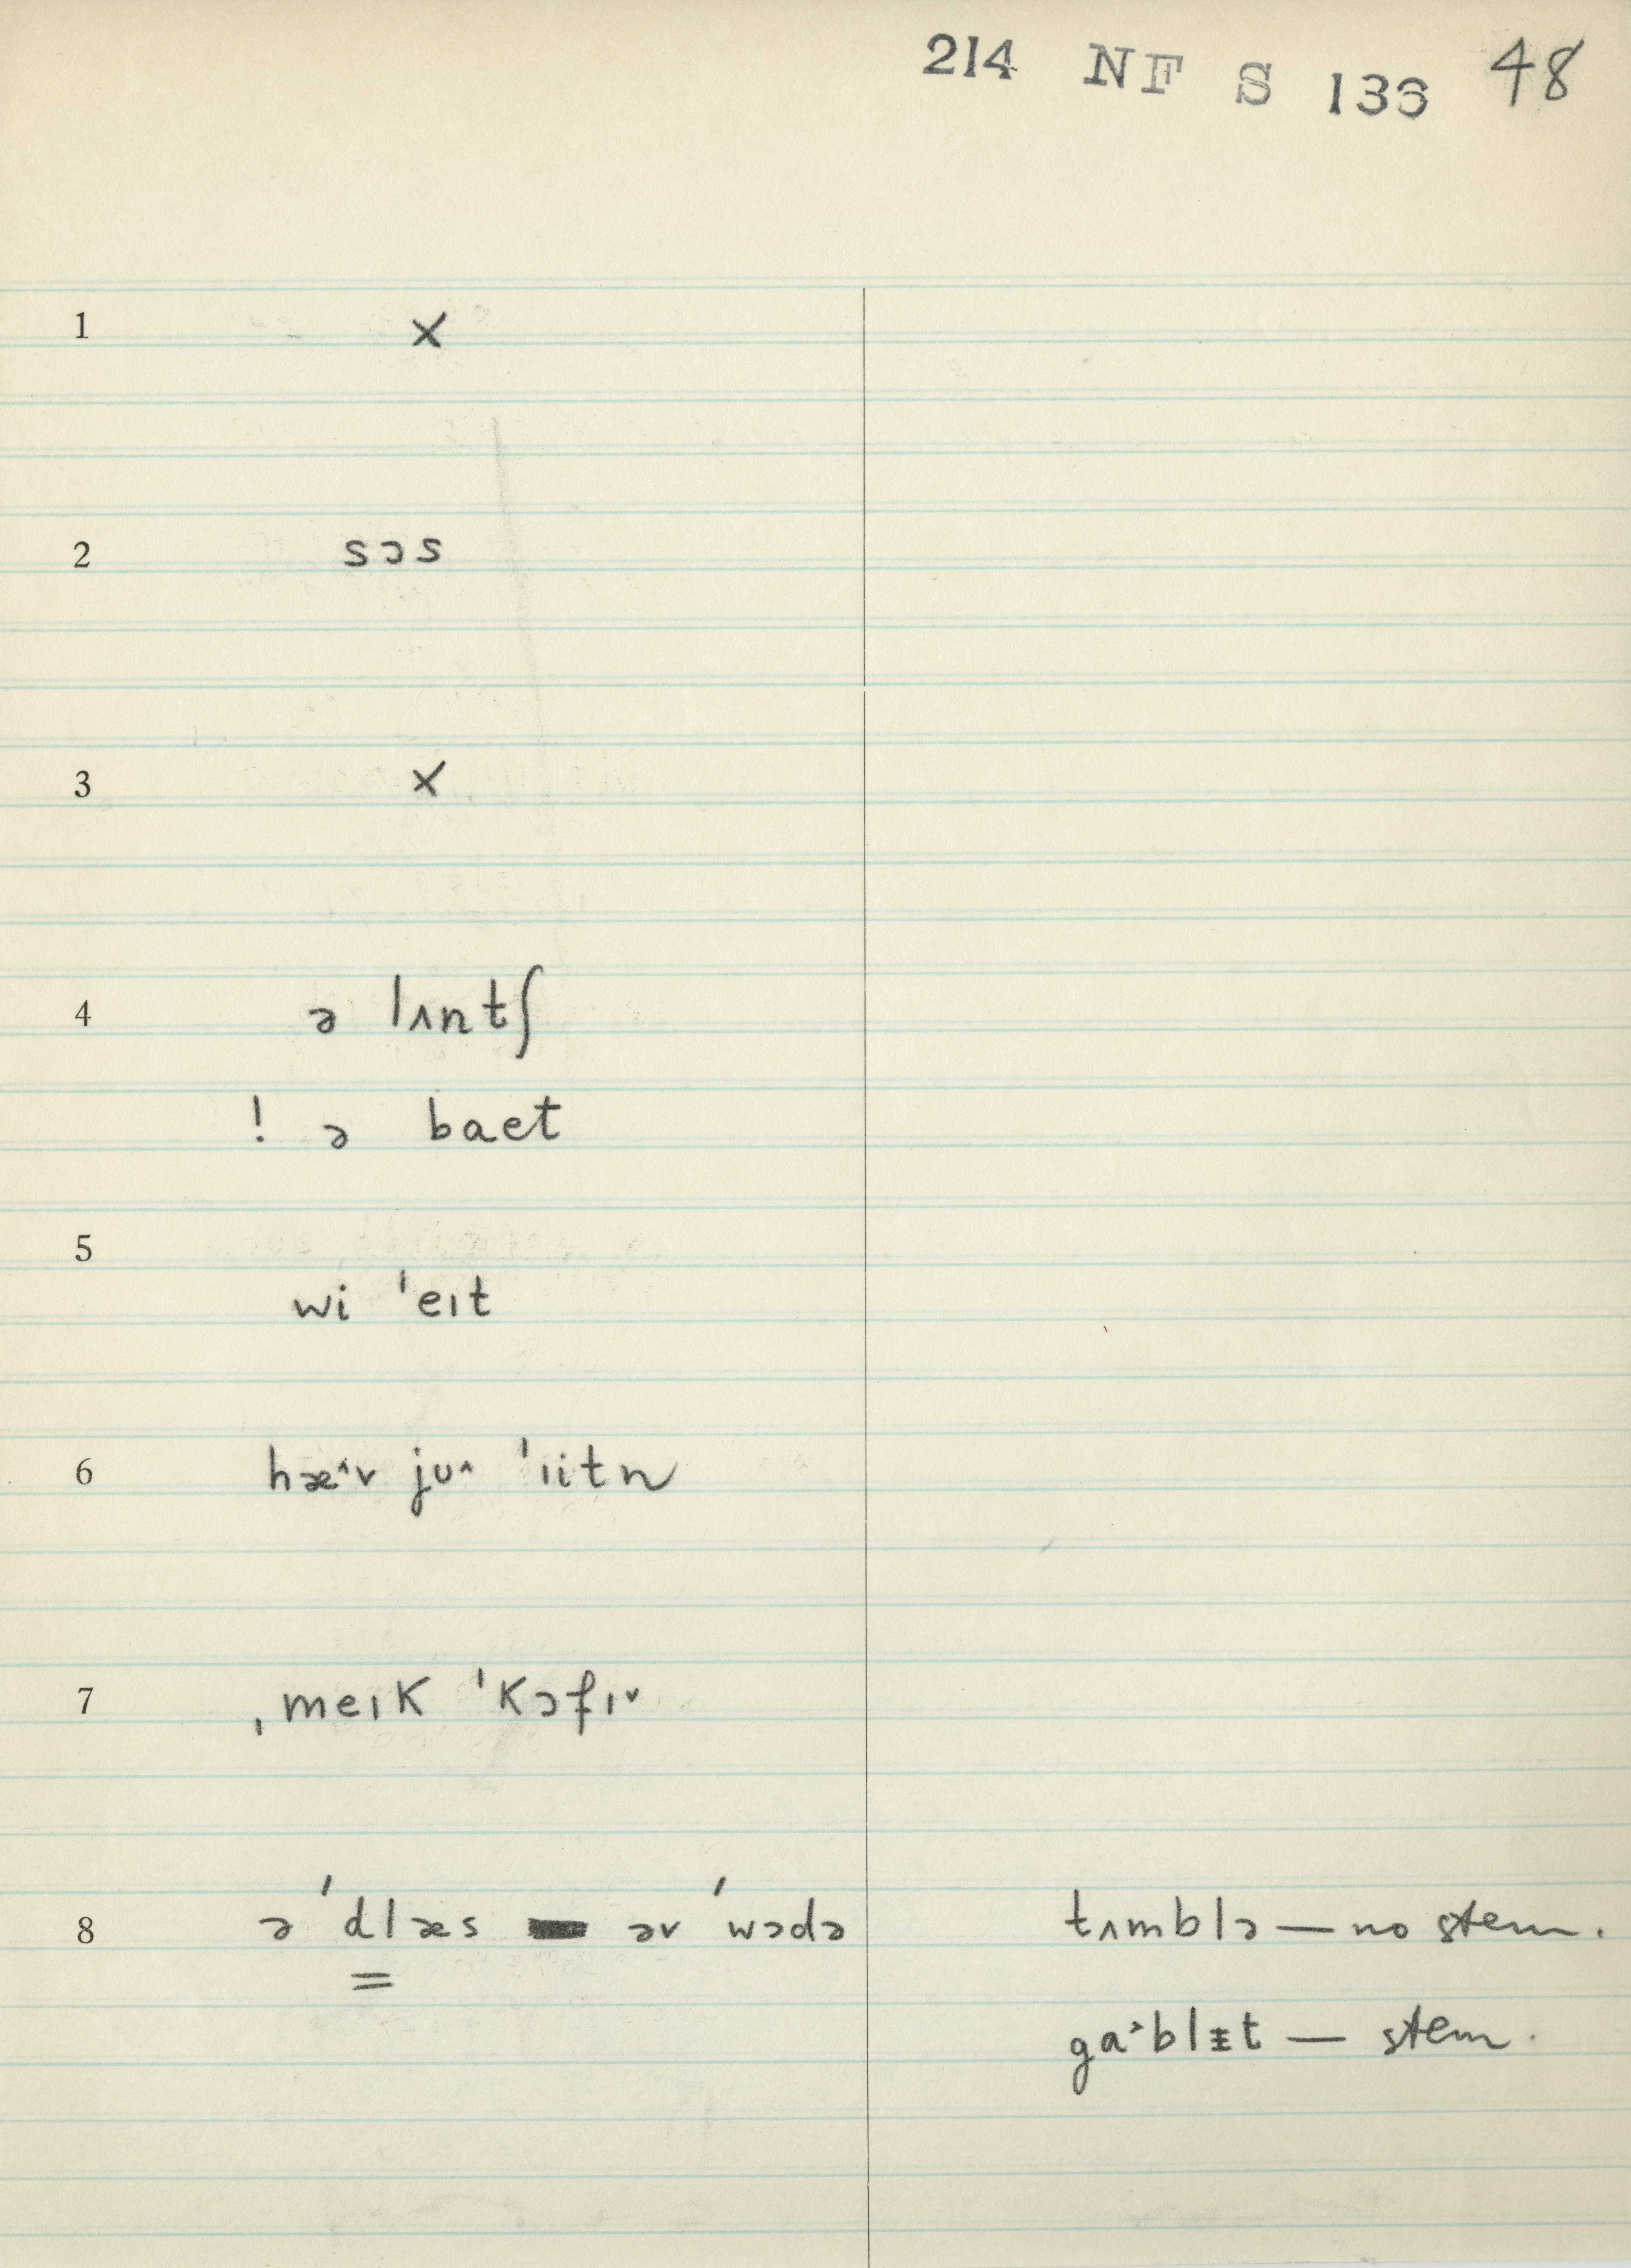 214 NF S 136 48
1 ×
2 sɔs
3 ×
4 ə lʌntʃ
! ə baet
5
wi ˈeɪt
6 hæ˄v ju˄ ˈɪitn
7 ˌmeɪk ˈkɔfɪ˅
8 ə ˈdlæs əv ˈwɔdə tʌmblə — no stem.
ga˃blɪ̵t — stem.